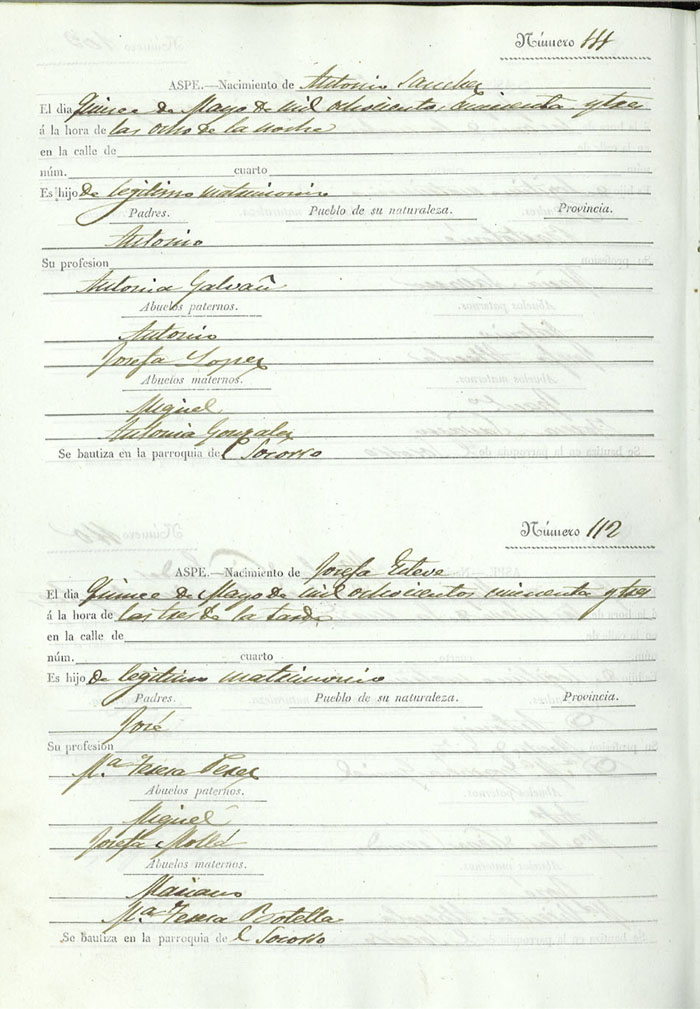 Número 111
ASPE.—Nacimiento de Antonio Sanchez
El dia Quince de Mayo de mil ochocientos cincuenta y tres
á la hora de las ocho de la noche
en la calle de
núm. cuarto
Es hijo de legitimo matrimonio
Padres. Pueblo de su naturaleza. Provincia.
Antonio
Su profesion
Antonia Galvañ
Abuelos paternos.
Antonio
Josefa Lopez
Abuelos maternos.
Miguel
Antonia Gonzalez
Se bautiza en la parroquia del Socorro
Número 112
ASPE.—Nacimiento de Josefa Esteve
El dia Quince de Mayo de mil ochocientos cincuenta y tres
á la hora de las tres de la tarde
en la calle de
núm. cuarto
Es hijo de legitimo matrimonio
Padres. Pueblo de su naturaleza. Provincia.
José
Su profesión
Mª Teresa Perez
Abuelos paternos.
Miguel
Josefa Mollá
Abuelos maternos.
Mariano
Mª Teresa Botella
Se bautiza en la parroquia de el Socorro